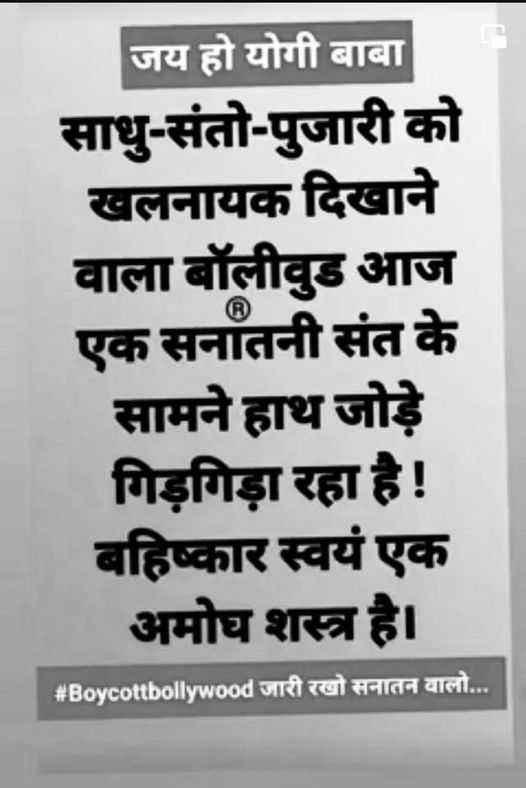 जय हो योगी बाबा
साधु-संतो-पुजारी को
खलनायक दिखाने
वाला बॉलीवुड आज
®
एक सनातनी संत के
सामने हाथ जोड़े
गिड़गिड़ा रहा है !
बहिष्कार स्वयं एक
अमोघ शस्त्र है।
#Boycottbollywood जारी रखो सनातन वालो...